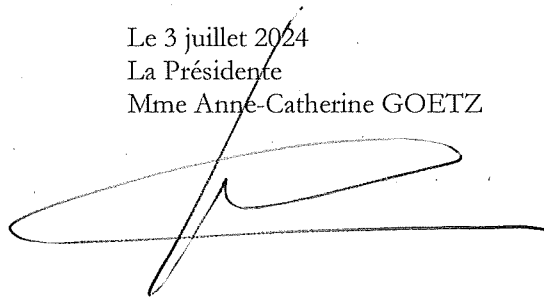 Le 3 juillet 2024
La Présidente
Mme Anne-Catherine GOETZ